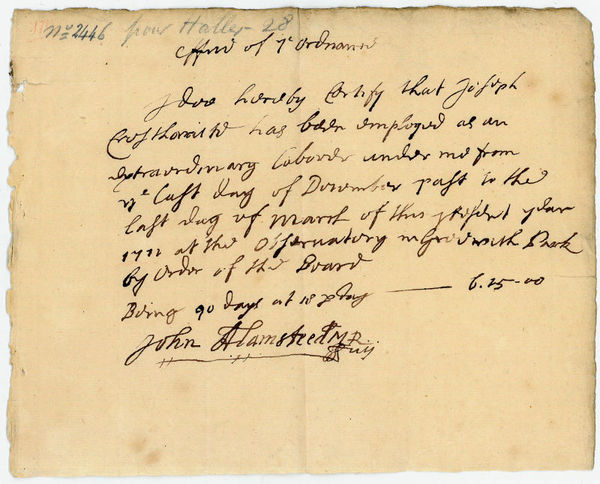 No 2446 from Halley 28
Office of ye Ordnance
I doe hereby Certify that Joseph
Crosthwaite has been employed as an
extraordinary Laborer under me from
ye Last day of December past to the
last day of March of this present year
1711 at the Observatory in Greenwich Park
by Order of the Board
Being 90 days at 18 p Day — 6.15-00
John Flamsteed MR